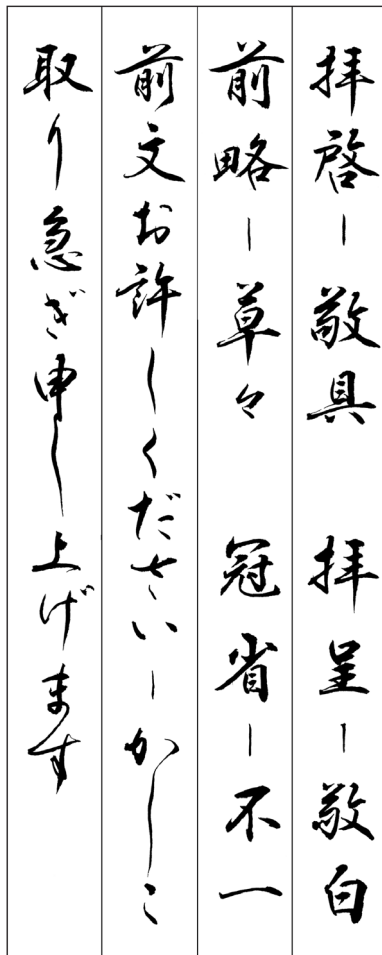 拝啓ー敬具　拝呈ー敬白
前略ー草々　冠省ー不一
前文お許しくださいーかしこ
取り急ぎ申し上げます